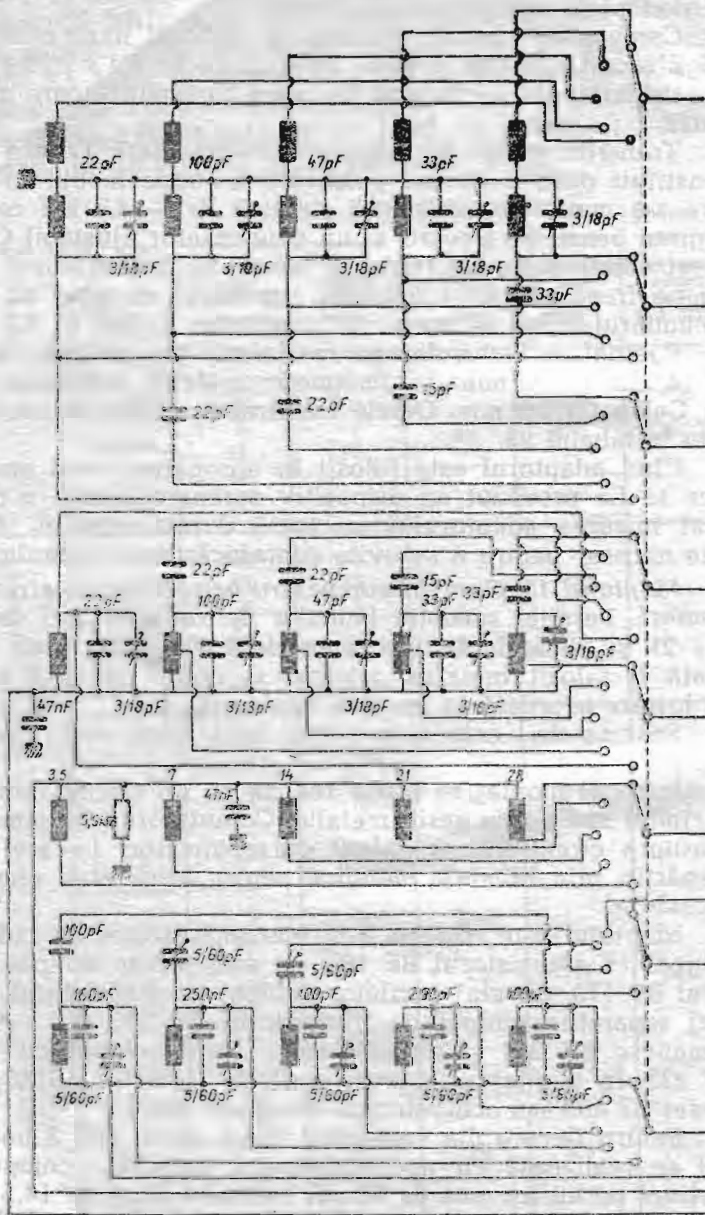 22pF 100pF 47pF 33pF
3/18pF
3/18pF 3/18pF 3/18pF 3/18pF
33pF
15pF
22pF 22pF
22pF 22pF 15pF 33pF
22pF 100pF 47pF 33pF
3/18pF
47nF 3/18pF 3/13pF 3/18pF 3/18pF
3,5 7 14 21 28
47nF
100pF 5/60pF 5/60pF
160pF 250pF 100pF 200pF 100pF
5/60pF 5/60pF 5/60pF 5/60pF 5/60pF